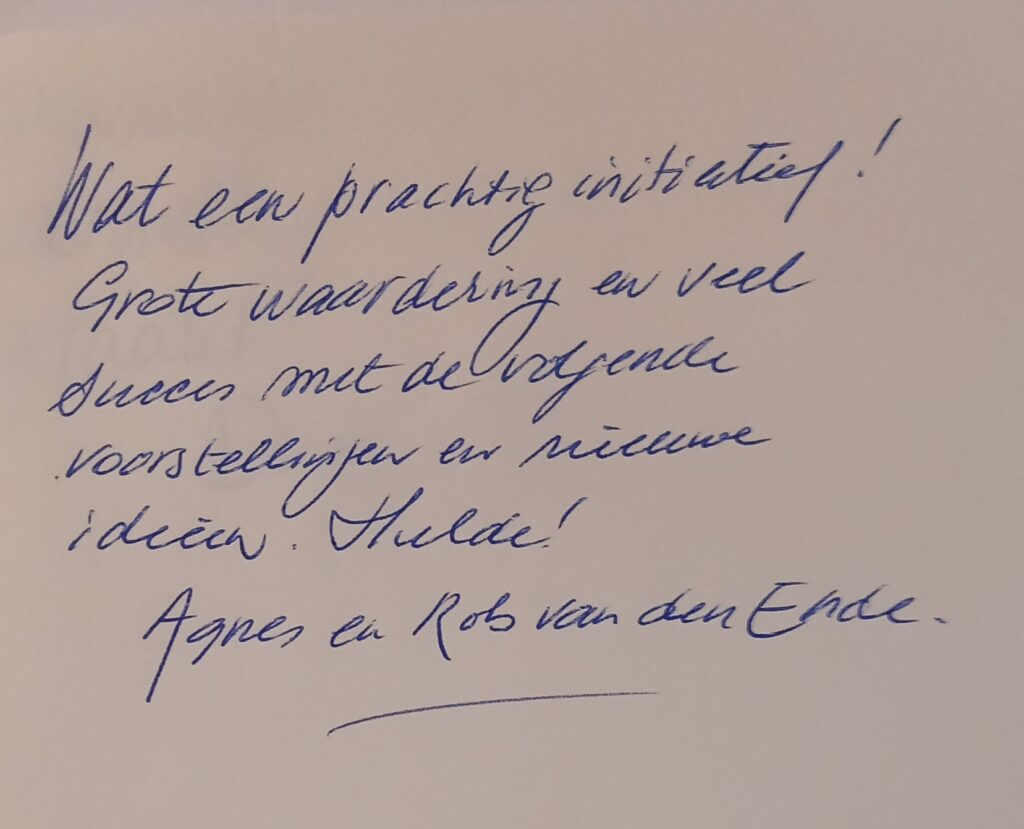 Wat een prachtig initiatief!
Grote waardering en veel
succes met de volgende
voorstellingen en nieuwe
ideeën. Hulde!
Agnes en Rob van den Ende.